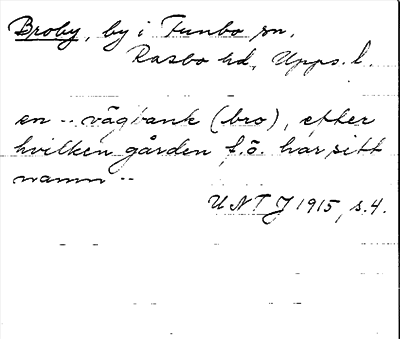 Broby, by i Funbo sn,
Rasbo hd, Upps. l.
en -- vägbank (bro), efter
hvilken gården f.ö. har sitt
namn --
UNT J 1915, s. 4.